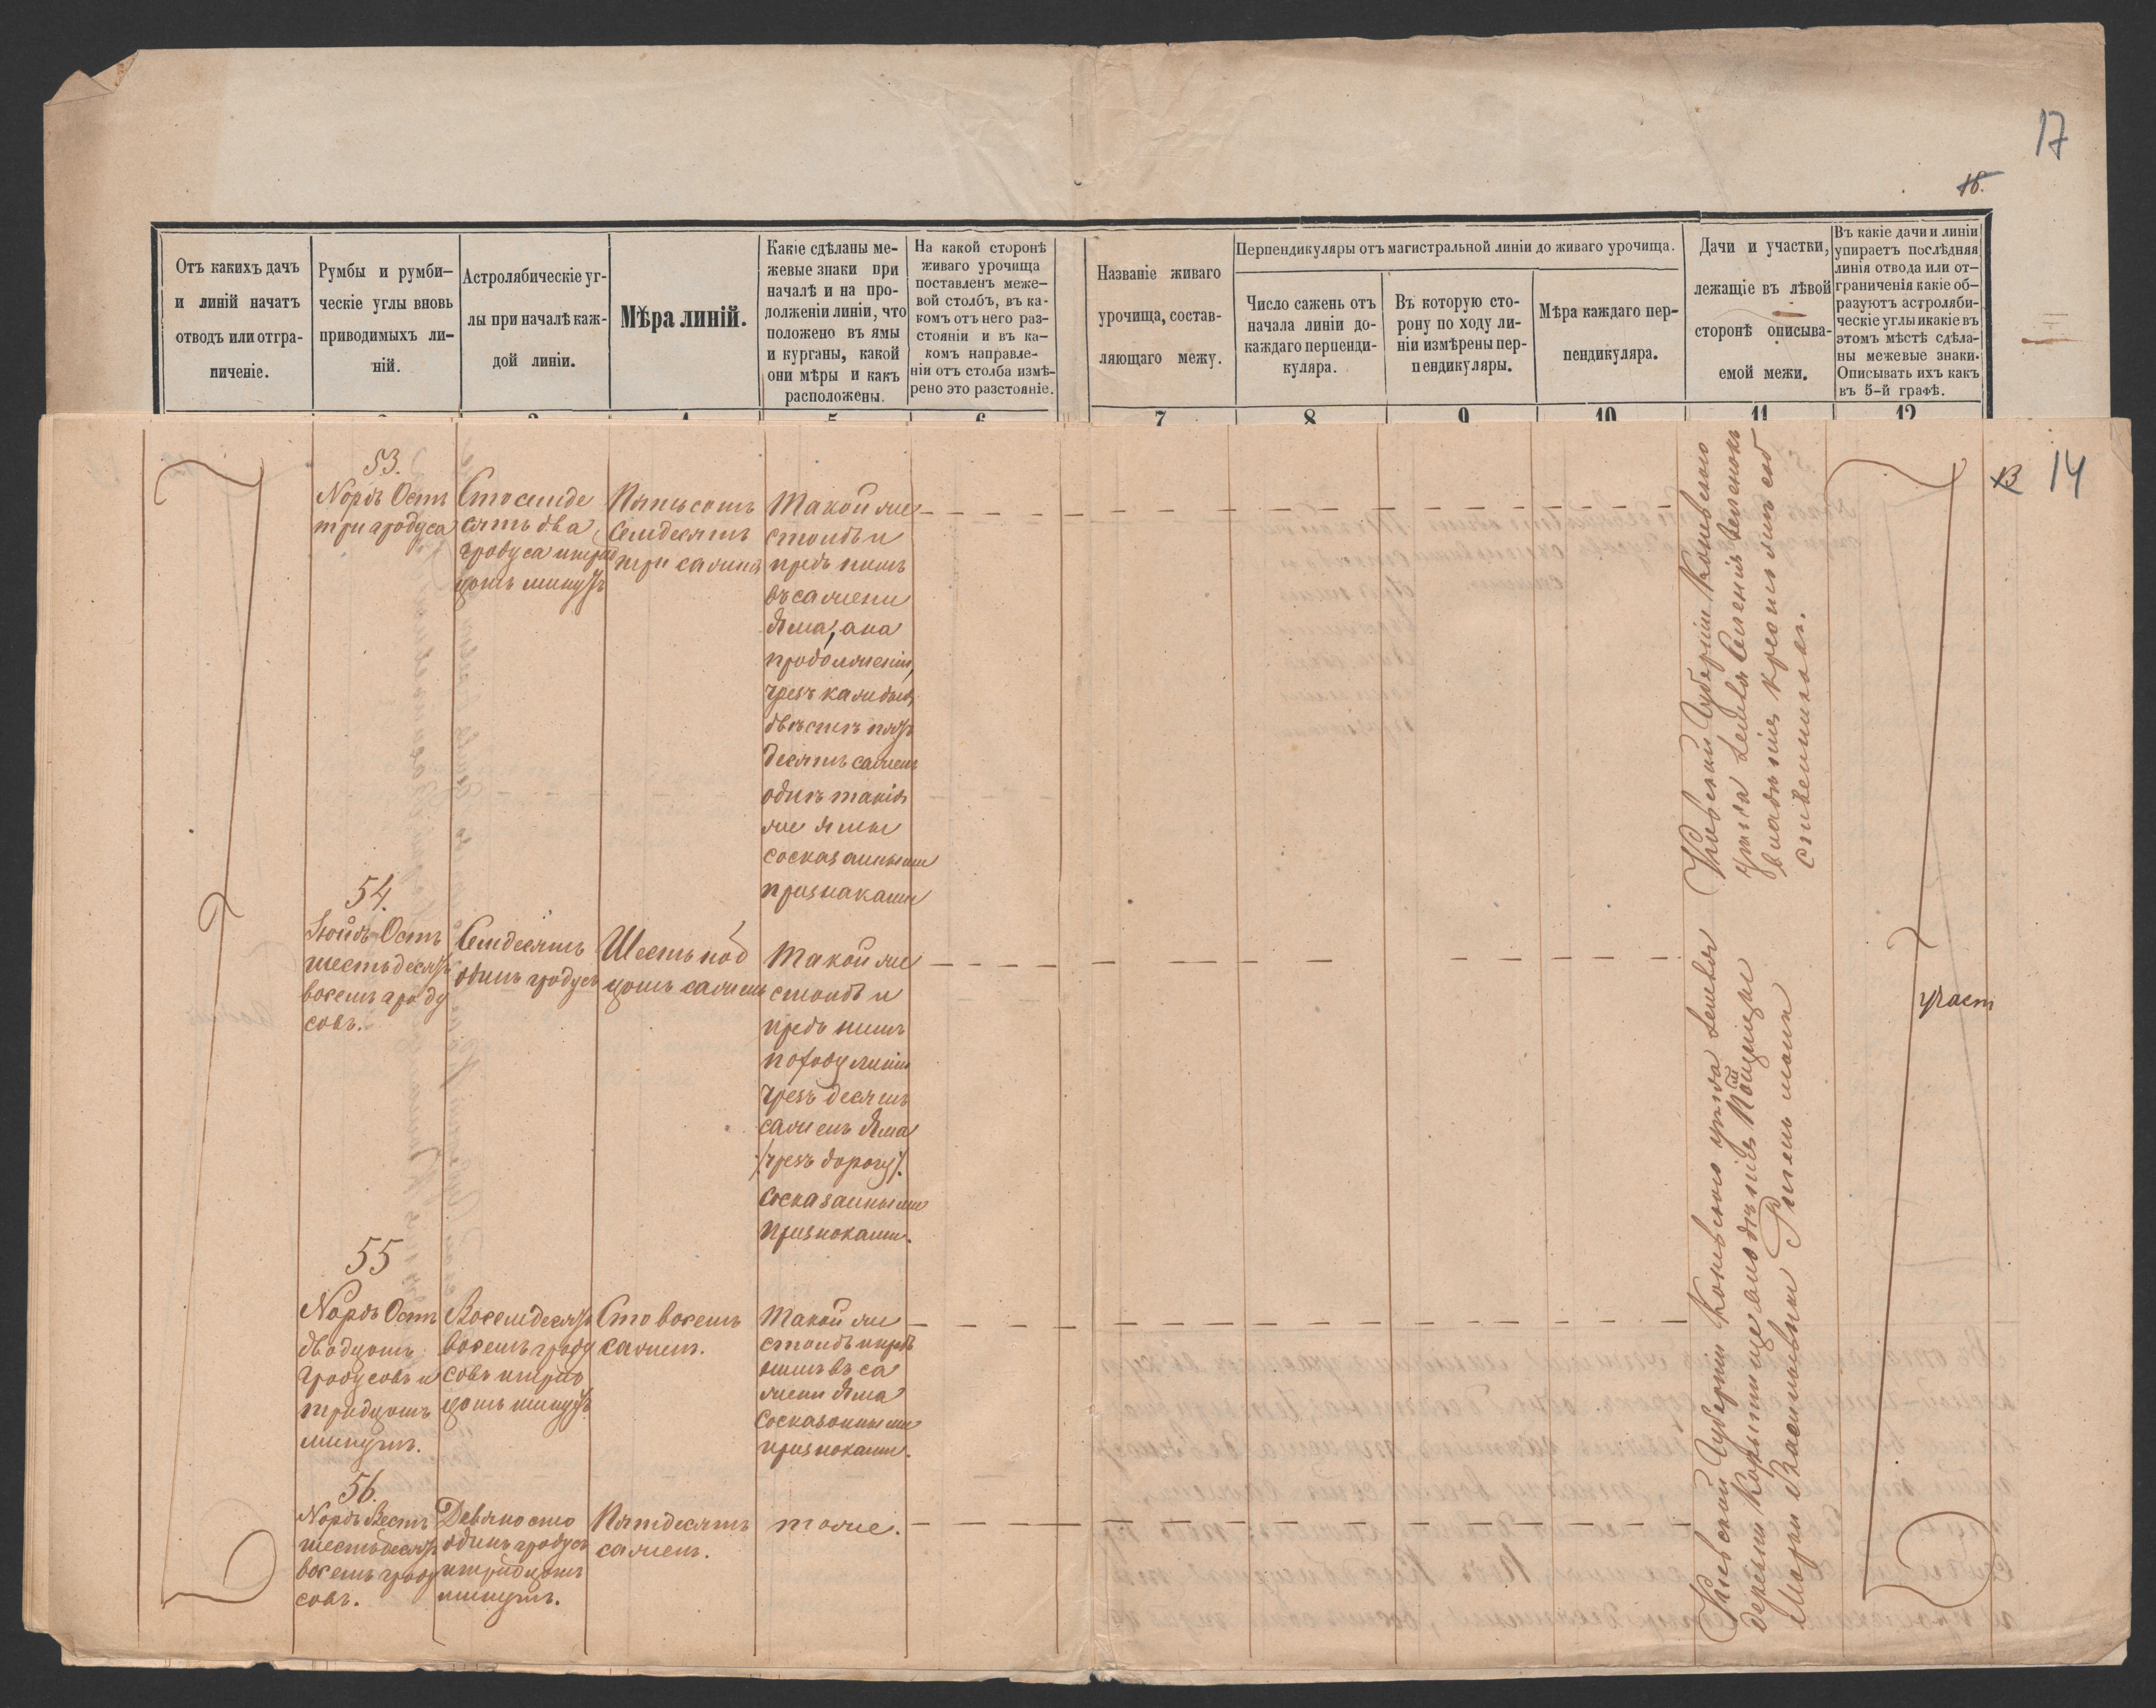 17
18.
Отъ какихъ дачъ
и линій начатъ
отводъ или отгра-
ниченіе.
Румбы и румби-
ческіе углы вновь
приводимыхъ ли-
ній.
Астролябическіе уг-
лы при началѣ каж-
дой линіи.
Мѣра линій.
Какіе сдѣланы ме-
жевые знаки при
началѣ и на про-
долженіи линіи, что
положено въ ямы
и курганы, какой
они мѣры и какъ
расположены.
На какой сторонѣ
живаго урочища
поставленъ меже-
вой столбъ, въ ка-
комъ отъ него раз-
стояніи и въ ка-
комъ направле-
ніи отъ столба измѣ-
рено это разстояніе.
Названіе живаго
урочища, состав-
ляющаго межу.
Перпендикуляры отъ магистральной линіи до живаго урочища.
Число сажень отъ
начала линіи до-
каждаго перпенди-
куляра.
Въ которую сто-
рону по ходу ли-
ніи измѣрены пер-
пендикуляры.
Мѣра каждаго пер-
пендикуляра.
Дачи и участки,
лежащіе въ лѣвой
сторонѣ описыва-
емой межи.
Въ какіе дачи и линіи
упираетъ послѣдняя
линія отвода или от-
граниченія какіе об-
разуютъ астроляби-
ческіе углы и какіе въ
этомъ мѣстѣ сдѣла-
ны межевые знаки.
Описывать ихъ какъ
въ 5-й графѣ.
7 8 9 10 11 12
13 14
53.
Нордъ Остъ
три градуса
Сто семде
сятъ два
градуса и трид
цать минутъ
Пятьсотъ
семдесятъ
три сажени
Такой же
столбъ и
предъ нимъ
въ сажени
яма, а на
продолженіи,
чрезъ каждые
двѣсти пять
десятъ сажень
однѣ такія
же ямы
со сказанными
признаками
54.
Зюйдъ Остъ
шестьдесятъ
восемь граду
совъ.
Семдесятъ
одинъ градусъ
Шестьнад
цать сажень
Такой же
столбъ и
предъ нимъ
по ходу линіи
чрезъ десять
сажень яма
/чрезъ дорогу/.
со сказанными
признаками.
55
Нордъ Остъ
двадцать
градусовъ и
тридцать
минутъ.
Восемдесятъ
восемь граду
совъ и трид
цать минутъ
Сто восемь
сажень.
Такой же
столбъ и предъ
нимъ въ са
жени яма
со сказанными
признаками.
56.
Нордъ Вестъ
шестьдесятъ
восемь граду
совъ.
Девяносто
одинъ градусъ
и тридцать
минутъ.
Пятдесятъ
сажень.
тоже.
Кіевской Губерніи Каневского
уѣзда Земля Селенія Зеленокъ
владѣнія крестьянъ соб
ственниковъ.
Кіевской Губерніи Каневского уѣзда Земля
деревни Корытище владѣнія Помѣщицы
Маріи Васильевны
участ